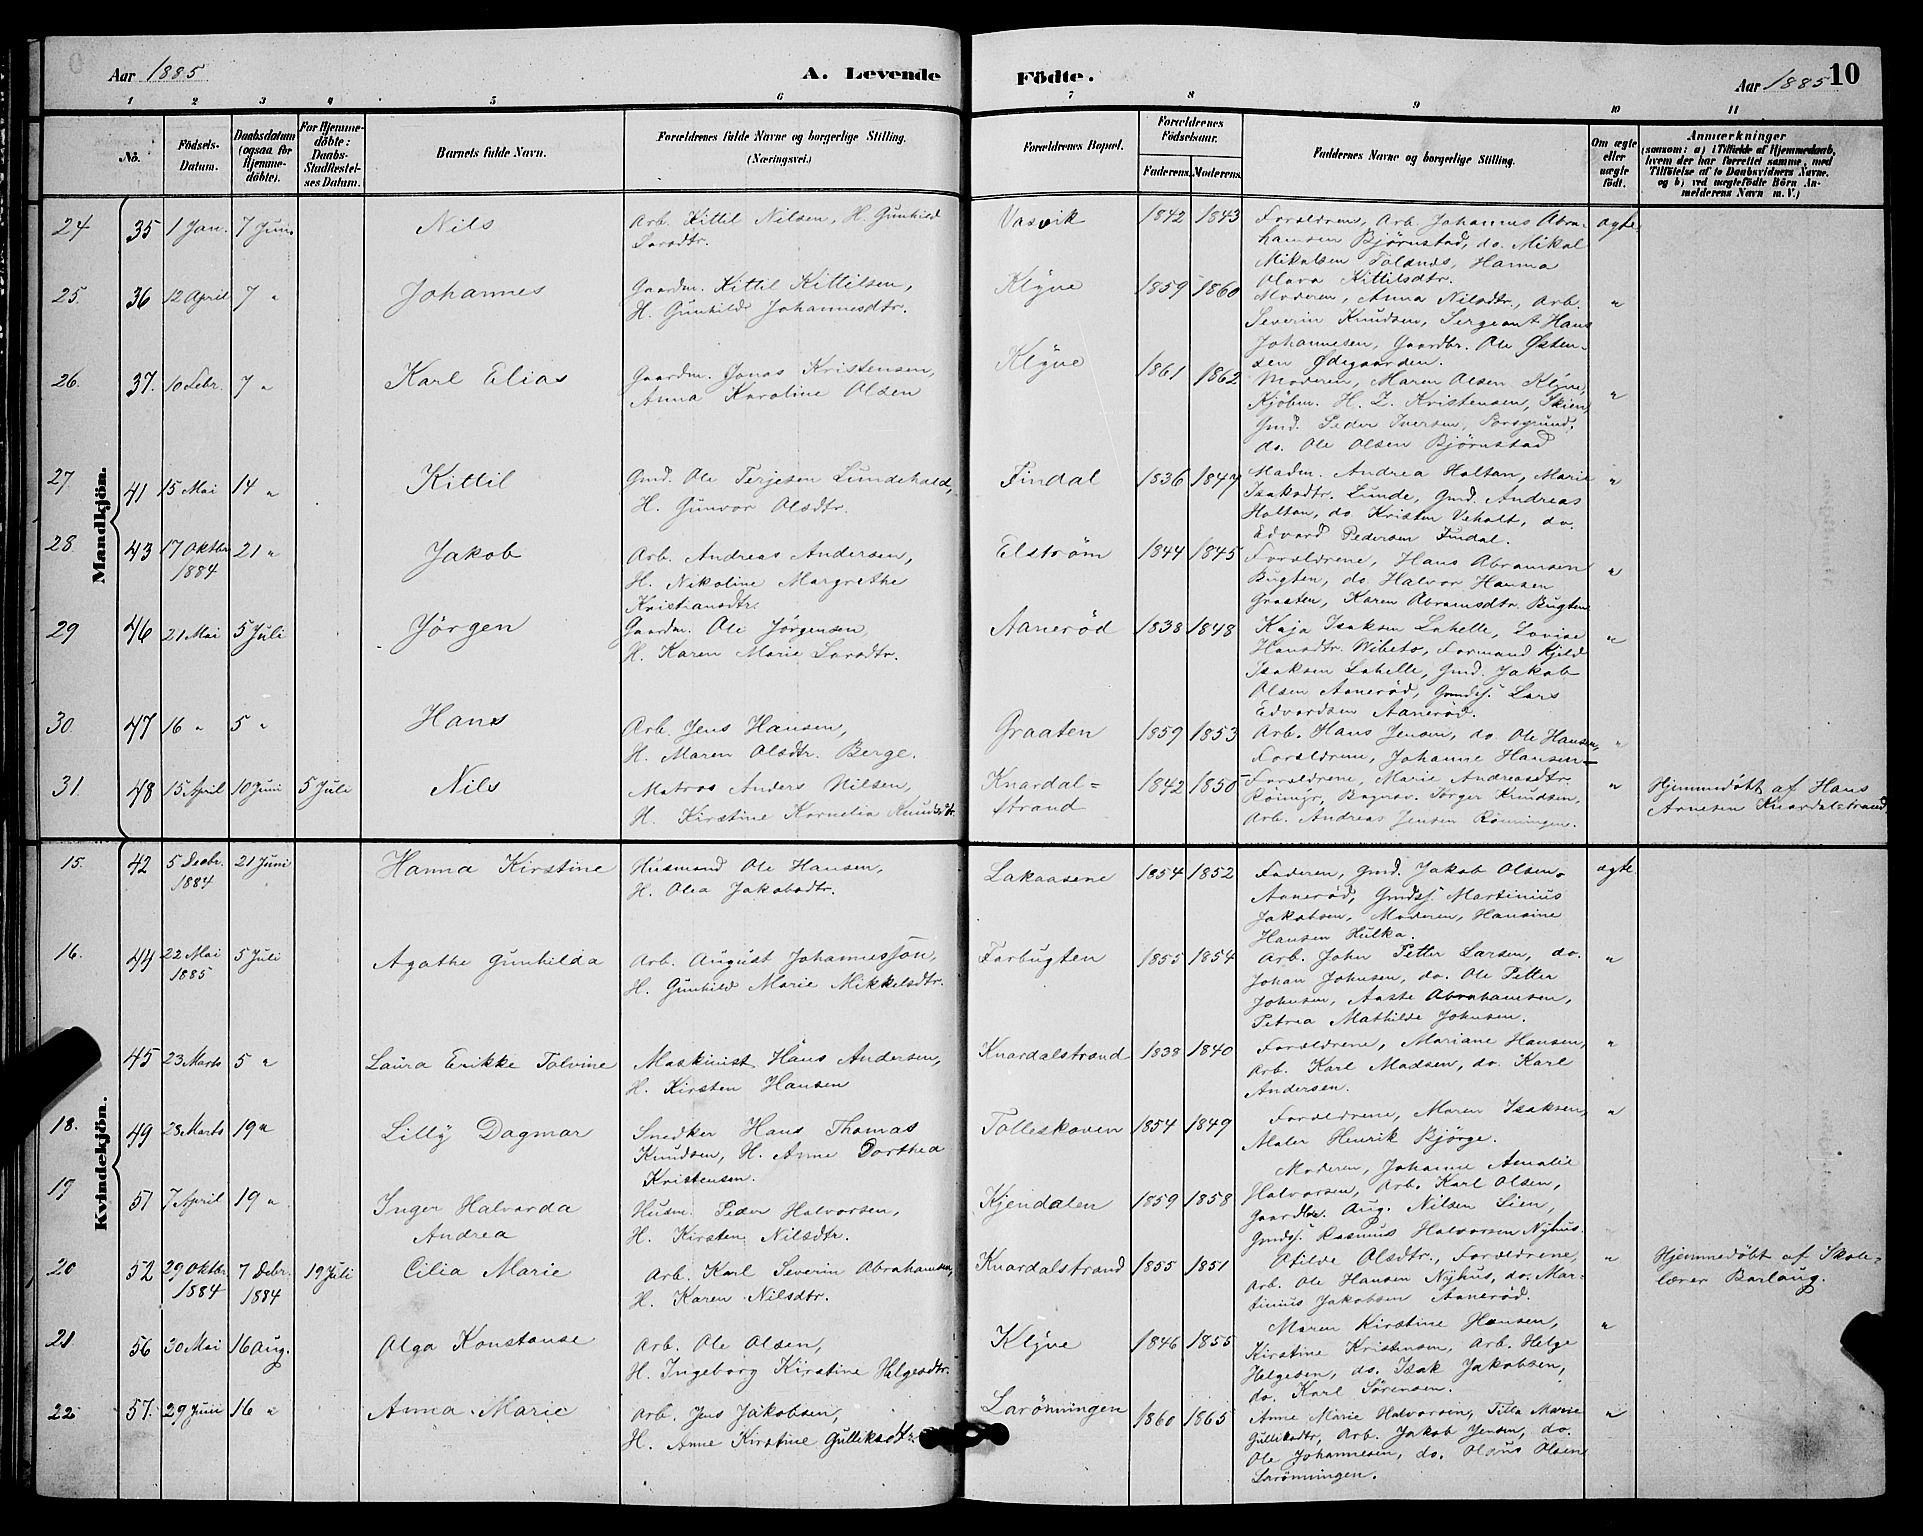 Aar 1885
A. Levende
Födte.
Aar 1885
10
1 2 3 4 5 6 7 8 9 10 11
No.
Födsels-Datum.
Daabsdatum (ogsaa for Hjemme-döbte).
For Hjemme-döbte: Daabs-Stadfæstel-ses Datum.
Barnets fulde Navn.
Forældrenes fulde Navne og borgerlige Stilling.
(Næringsvei.)
Forældrenes Bopæl.
Forældrenes Födselsaar.
Faderens. Moderens.
Faddernes Navne og borgerlige Stilling.
Om ægte eller uægte födt.
Anmærkninger
(saasom: a) i Tilfælde af Hjemmedaab,
hvem der har forrettet samme, med
Tilföielse af to Daabsvidners Navne.
og b) ved uægtefödte Börn An-
melderens Navn m. V.)
Mandkjön.
24 35 1 Jan. 7 Juni Nils
Arb. Kittil Nilsen, H. Gunhild
Larsdtr.
Vasvik 1842 1843
Forældrene, Arb. Johannes Abra-
hamsen Bjørnstad, do. Mikal
Mikalsen Foldnes, Hanna
Olava Kittilsdtr.
ægte
25. 36 12 April 7 " Johannes
Gaardm. Kittil Kittilsen,
H. Gunhild Johannesdtr.
Klyve 1859 1860
Moderen, Anna Nilsdtr., Arb.
Severin Knudsen, Sergeant Hans
Johannesen, Gaardbr. Ole Østen-
sen Ødegaarden.
"
26. 37. 10 Febr. 7 " Karl Elias
Gaardm. Jonas Kristensen,
Anna Karoline Olsen
Klyve 1861 1862
Moderen, Maren Olsen Klyve,
Kjøbm. H. Z. Kristensen, Skien,
Gmd. Peder Iversen, Porsgrund,
do. Ole Olsen Bjørnstad
"
27 41 15 Mai 14 " Kittil
Gmd. Ole Terjesen Lundehald,
H. Gunvor Olsdtr.
Findal 1836 1847
Madm. Andrea Holtan, Marie
Isaksdtr. Lunde, Gmd. Andreas
Holtan, do. Kristen Veholt, do.
Edvard Pedersen Findal.
"
28 43 17 Oktbr. 1884 21 " Jakob
Arb. Andreas Andersen,
H. Nikoline Margrethe
Kristiansdtr.
Elstrøm 1844 1845
Forældrene, Hans Abramsen
Bugten, do. Halvor Hansen
Graaten, Karen Abramsdtr. Bugten
"
29 46 21 Mai 5 Juli Jörgen
Gaardm. Ole Jörgensen,
H. Karen Marie Larsdtr.
Aanerød 1838 1848
Kaja Isaksen Lahelle, Lovise
Hansdtr. Wibeto, Formand Kjeld
Isaksen Lahelle, Gmd. Jakob
Olsen Aanerød, Gmdsj. Lars
Edvardsen Aanerød.
"
30. 47 16 " 5 " Hans
Arb. Jens Hansen,
H. Maren Olsdtr. Berge.
Graaten 1859 1853
Arb. Hans Jensen, do. Ole Hansen,
Forældrene, Johanne Hansen
"
31. 48 15 April 10 Juni 5 Juli Nils
Matros Anders Nilsen,
H. Kirstine Kornelia Knudsdtr.
Knardal-
strand
1842 1850
Forældrene, Marie Andreasdtr
Røimyr, Børger Knudsen,
Arb. Andreas Jensen Rønningen.
"
Hjemmedøbt af Hans
Arnesen Knardalstrand
Kvindekjön.
15. 42 5 Decbr. 1884 21 Juni Hanna Kirstine
Husmand Ole Hansen,
H. Olea Jakobsdtr.
Lakaasene 1854 1852
Faderen, Gmd. Jakob Olsen
Aanerød, Gmdsj. Martinius
Jakobsen, Moderen, Hansine
Hansen Hulka.
ægte
16. 44 22 Mai 1885 5 Juli Agathe Gunhilda
Arb. August Johannesson,
H. Gunhild Marie Mikkelsdtr.
Farbugten 1855 1854
Arb. John Petter Larsen, do.
Johan Johnsen, do. Ole Petter
Johnsen, Aaste Abrahamsen,
Petrea Mathilde Johnsen.
"
45 23 Marts 5 " Laura Erikke Tolvine
Maskinist Hans Andersen,
H. Kirsten Hansen
Knardalstrand 1838 1840
Forældrene, Mariane Hansen,
Arb. Karl Madsen, do. Karl
Andersen.
"
18. 49 28 Marts 19 " Lilly Dagmar
Snedker Hans Thomas
Knudsen, H. Anne Dorthea
Kristensen.
Tolleskoven 1854 1849
Forældrene, Maren Isaksen,
Maler Henrik Bjørge.
"
19 51 7 April 19 " Inger Halvarda
Andrea
Husm. Peder Halvorsen,
H. Kirsten Nilsdtr.
Kjendalen 1859 1858
Moderen, Johanne Amalie
Halvorsen, Arb. Karl Olsen,
Gaardbr. Aug. Nilsen Lien,
Gmdsj. Rasmus Halvorsen Nyhus.
20 52 29 Oktbr. 1884 7 Debr. 1884 19 Juli Cilia Marie
Arb. Karl Severin Abrahamsen,
H. Karen Nilsdtr.
Knardalstrand 1855 1851
Ofilde Olsdtr., Forældrene,
Arb. Ole Hansen Nyhus, do. Mar-
tinius Jakobsen Aanerød.
"
Hjemmedøbt af Skole-
lærer Barlaug.
21. 56 30 Mai 16 Aug. Olga Konstanse
Arb. Ole Olsen,
H. Ingeborg Kirstine Helgesdtr.
Klyve 1846 1855
Maren Kirstine Hansen,
Kirstine Kristensen, Arb. Helge
Helgesen, do. Isak Jakobsen,
do. Karl Sörensen.
"
22 57. 29 Juni 16 " Anna Marie
Arb. Jens Jakobsen,
H. Anne Kirstine Gulliksdtr.
Larønningen 1860 1865
Anne Marie Halvorsen, Tilla Marie
Gulliksdtr, Arb. Jakob Jensen, do.
Ole Johannesen, do. Olaus Olsen
Larønningen.
"